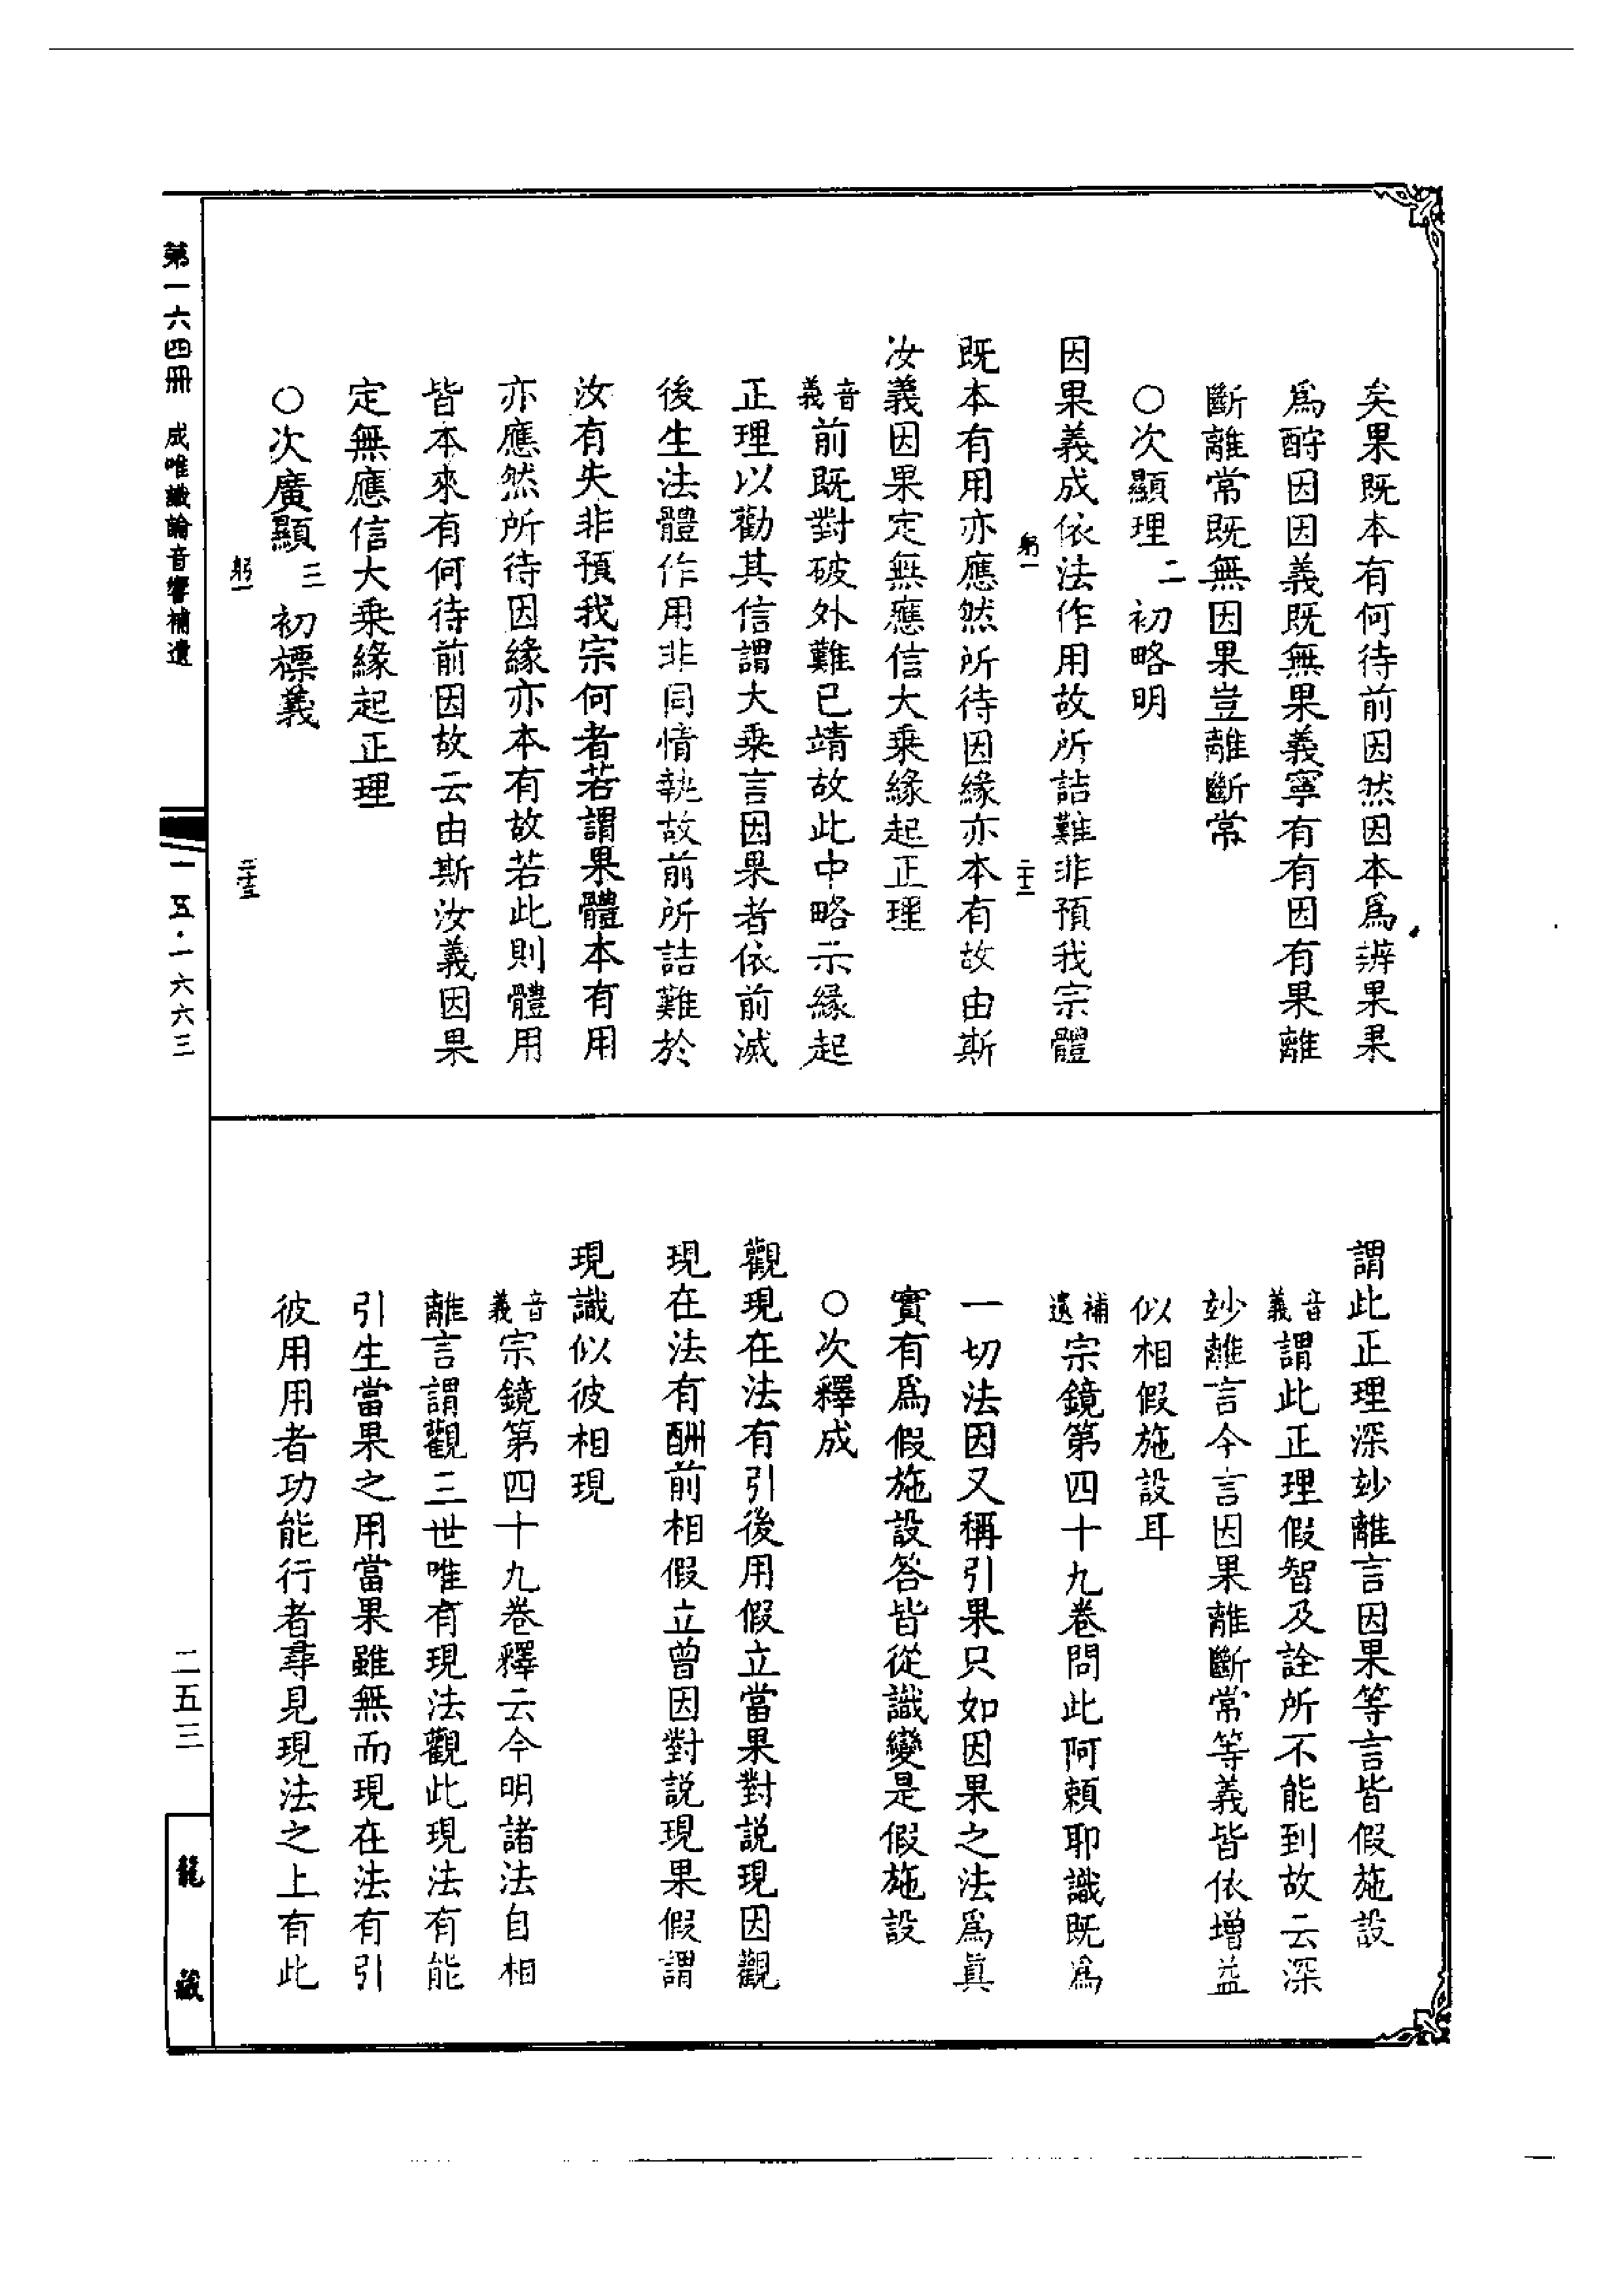 矣果既本有何待前因然因本爲辨果果
爲酧因因義既無果義寧有有因有果離
斷離常既無因果豈離斷常
○次顯理二 初略明
因果義成依法作用故所詰難非預我宗體
躬一 二十二
既本有用亦應然所待因緣亦本有故由斯
汝義因果定無應信大乘緣起正理
音義前既對破外難已靖故此中略示緣起
正理以勸其信謂大乘言因果者依前滅
後生法體作用非同情執故前所詰難於
汝有失非預我宗何者若謂果體本有用
亦應然所待因緣亦本有故若此則體用
皆本來有何待前因故云由斯汝義因果
定無應信大乘緣起正理
○次廣顯三 初標義
躬一 二十三
謂此正理深玅離言因果等言皆假施設
音義謂此正理假智及詮所不能到故云深
玅離言今言因果離斷常等義皆依增益
似相假施設耳
補遺宗鏡第四十九卷問此阿賴耶識既爲
一切法因又稱引果只如因果之法爲眞
實有爲假施設答皆從識變是假施設
○次釋成
觀現在法有引後用假立當果對説現因觀
現在法有酬前相假立曾因對説現果假謂
現識似彼相現
音義宗鏡第四十九卷釋云今明諸法自相
離言謂觀三世唯有現法觀此現法有能
引生當果之用當果雖無而現在法有引
彼用用者功能行者尋見現法之上有此
第一六四冊 成唯識論音響補遺
一五·一六六三
二五三
龍藏